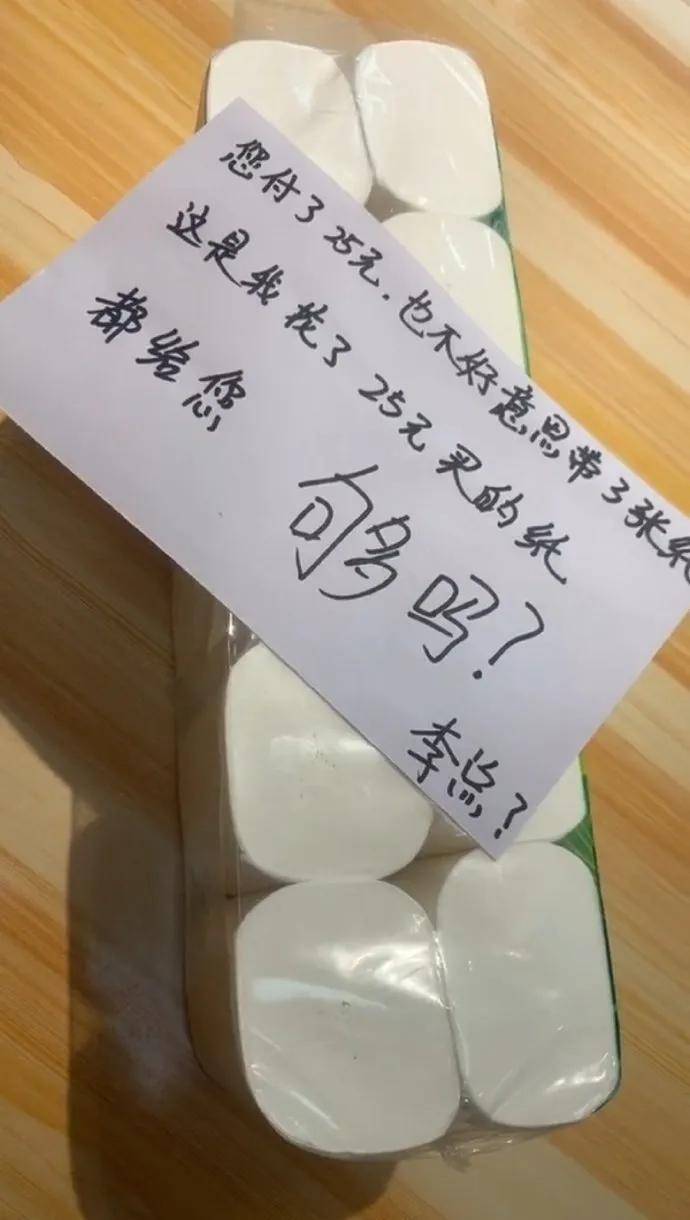 您付了25元.也不好意思带了张纸
这是我找了25元买的纸
都给您
够吗?
李总?